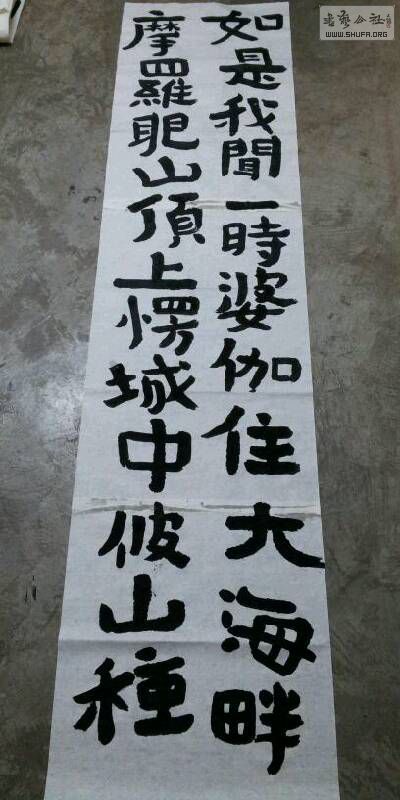 如是我聞一時婆伽住大海畔
摩羅耶山頂上愣城中彼山種
书艺公社
WWW.SHUFA.ORG